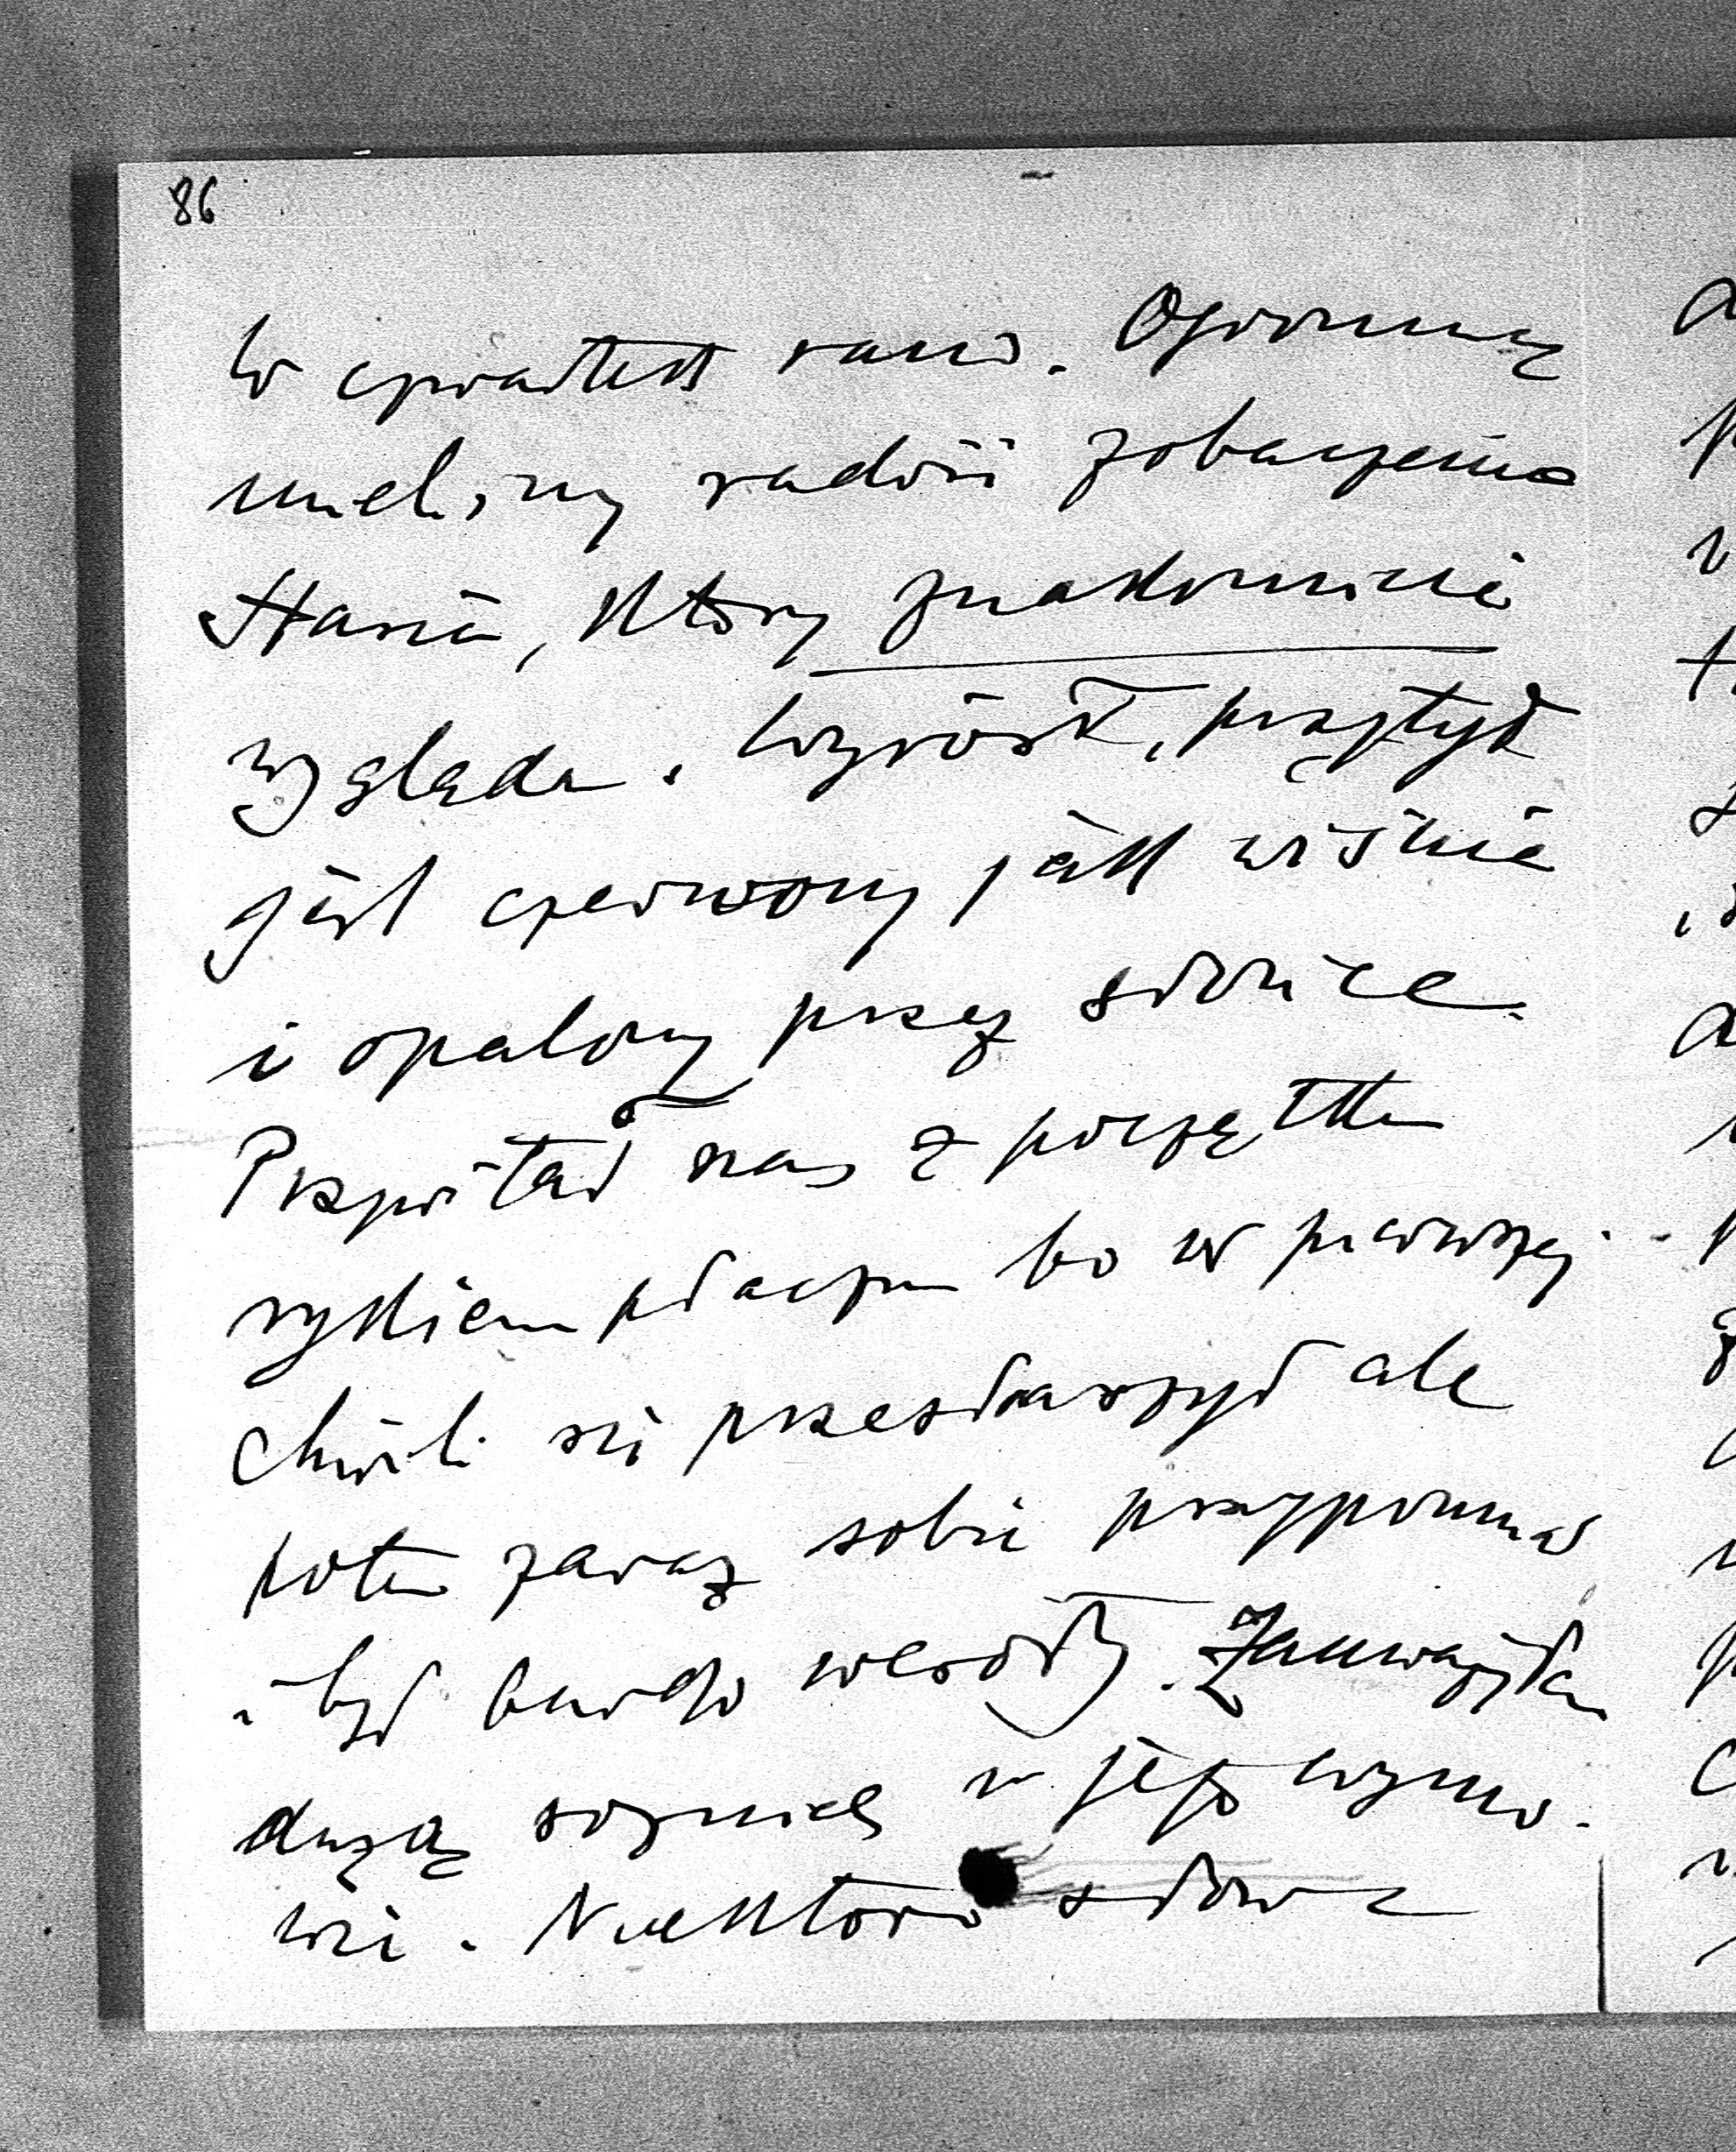 86
W czwartek rano. Ogromną
mieliśmy radość zobaczenia
Stasia, który znakomicie
wygląda. Wyrósł, przytył
jest czerwony jak wiśnia
i opalony przez słońce.
Przywitał nas z początku
rykiem płaczu bo w pierwszej
chwili się przestraszył ale
potem zaraz sobie przypomniał
i był bardzo wesoły. Zauważyłam
dużą różnicę w jego wymo-
wie. Niektóre słowa